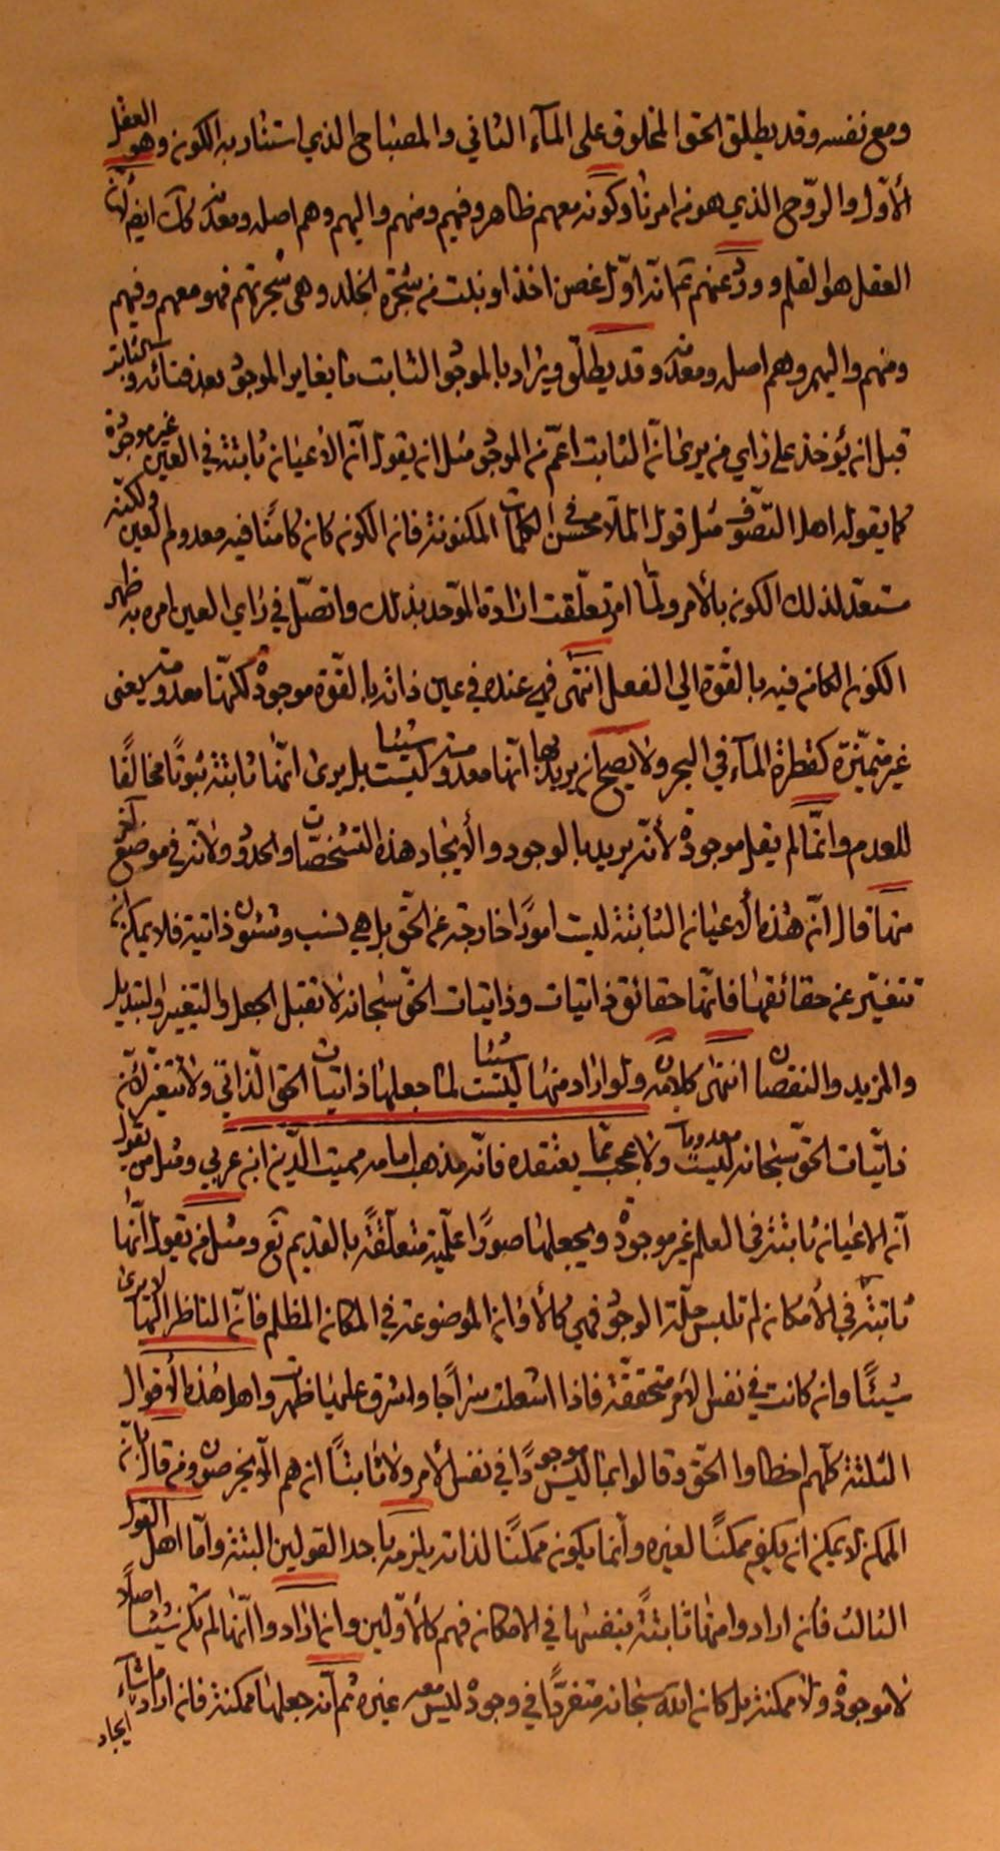 ومع نفسه وقد يطلق الحق المخلوق على المآء الثاني والمصباح الذي استنار به الكون وهو العقل
الأوّل والرّوح الذي هو من امرنا وكونه معهم ظاهر وفيهم ومنهم واليهم وهم اصله ومعدنه كل ايض لأن
العقل هو القلم وورد عنهم انّه اوّل غصن اخذ او نبت من شجرة الخلد وهي شجرتهم فهو معهم وفيهم
ومنهم واليهم وهم اصله ومعدنه وقد يطلق ويراد بالموجود الثابت ما يغاير الموجود بعد فنائه و
قبل ان يؤخذ على راي من يرى انّ الثابت اعمّ من الموجود مثل ان يقول انّ الاعيان ثابتة في العين غير موجودة
كما يقوله اهل التصوّف مثل قول الملّا محسن في الكلمات المكنونة فان الكون كان كامنًا فيه معدوم العين ولكنّه
مستعدّ لذلك الكون بالأمر ولمّا امر تعلّقت ارادة الموجد بذلك واتصل في راي العين امره به ظهر
الكون الكامن فيه بالقوّة الى الفعل انتهى فهي عنده في عين ذاته بالقوّة موجودة لكنّها معدومة يعنى
غير متميّزة كقطرة المآء في البحر ولا يصح ان يريد بها انّها معدومة ليست شيئا بل يرى انّها ثابتة ثبوتًا مخالفًا
للعدم وانّما لم يقل موجودة لأنّه يريد بالوجود والأيجاد هذه التشخصات والحدود ولأنّه في موضع آخر
منها قال انّ هذه الأعيان الثابتة ليست امورًا خارجة عن الحقّ بل هي نسب وشئون ذاتية فلا يمكن ان
تتغيّر عن حقائقها فانّها حقائق ذاتيات وذاتيات الحقّ سبحانه لا تقبل الجعل والتغيير والتبديل
والمزيد والنقصان انتهى كلامه ولو اراد منها ليست شيئا لما جعلها ذاتيات الحق الذّاتي ولا تتغيّر لأنّ
ذاتيّات الحقّ سبحانه ليست معدومة ولا عجب ممّا يعتقده فانّه مذهب امامه مميت الدّين ابن عربي ومثل من يقول
انّ الاعيان ثابتة في العلم غير موجودة ويجعلها صورًا علميّة متعلّقةً بالقديم تع ومثل من يقول انّها
ثابتة في الأمكان لم تلبس حلّة الوجود فهي كالأواني الموضوعة في المكان المظلم فانّ الناظر اليها لا يرى
شيئًا وان كانت في نفس الأمر متحققّة فاذا اشعلت سراجًا واشرق عليها ظهرت واهل هذه الأقوال
الثلثة كلّهم اخطاوا الحقّ وقالوا بما ليس موجودًا في نفس الأمر ولا ثابتًا ان هم الّا يخرصون ومن قال بانّ
الممكن لا يمكن ان يكون ممكنًا لغيره وانّما يكون ممكنًا لذاته يلزمه باحد القولين البتة وامّا اهل القول
الثالث فان ارادوا انها ثابتةً بنفسها في الامكان فهم كالأوّلين وان ارادوا انّها لم تكن شيئا اصلًا
لا موجودة ولا ممكنة بل كان الله سبحانه متفردًا في وجوده ليس معه غيره ثم انّه جعلها ممكنة فان اراد ما شآء
ايجاد